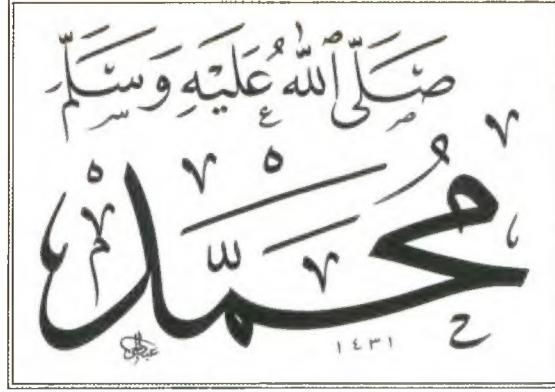 صَلَّى ٱللَّٰه عَلَيْهِ وَسَلَّمَ
مُحَمَّد
١٤٣١